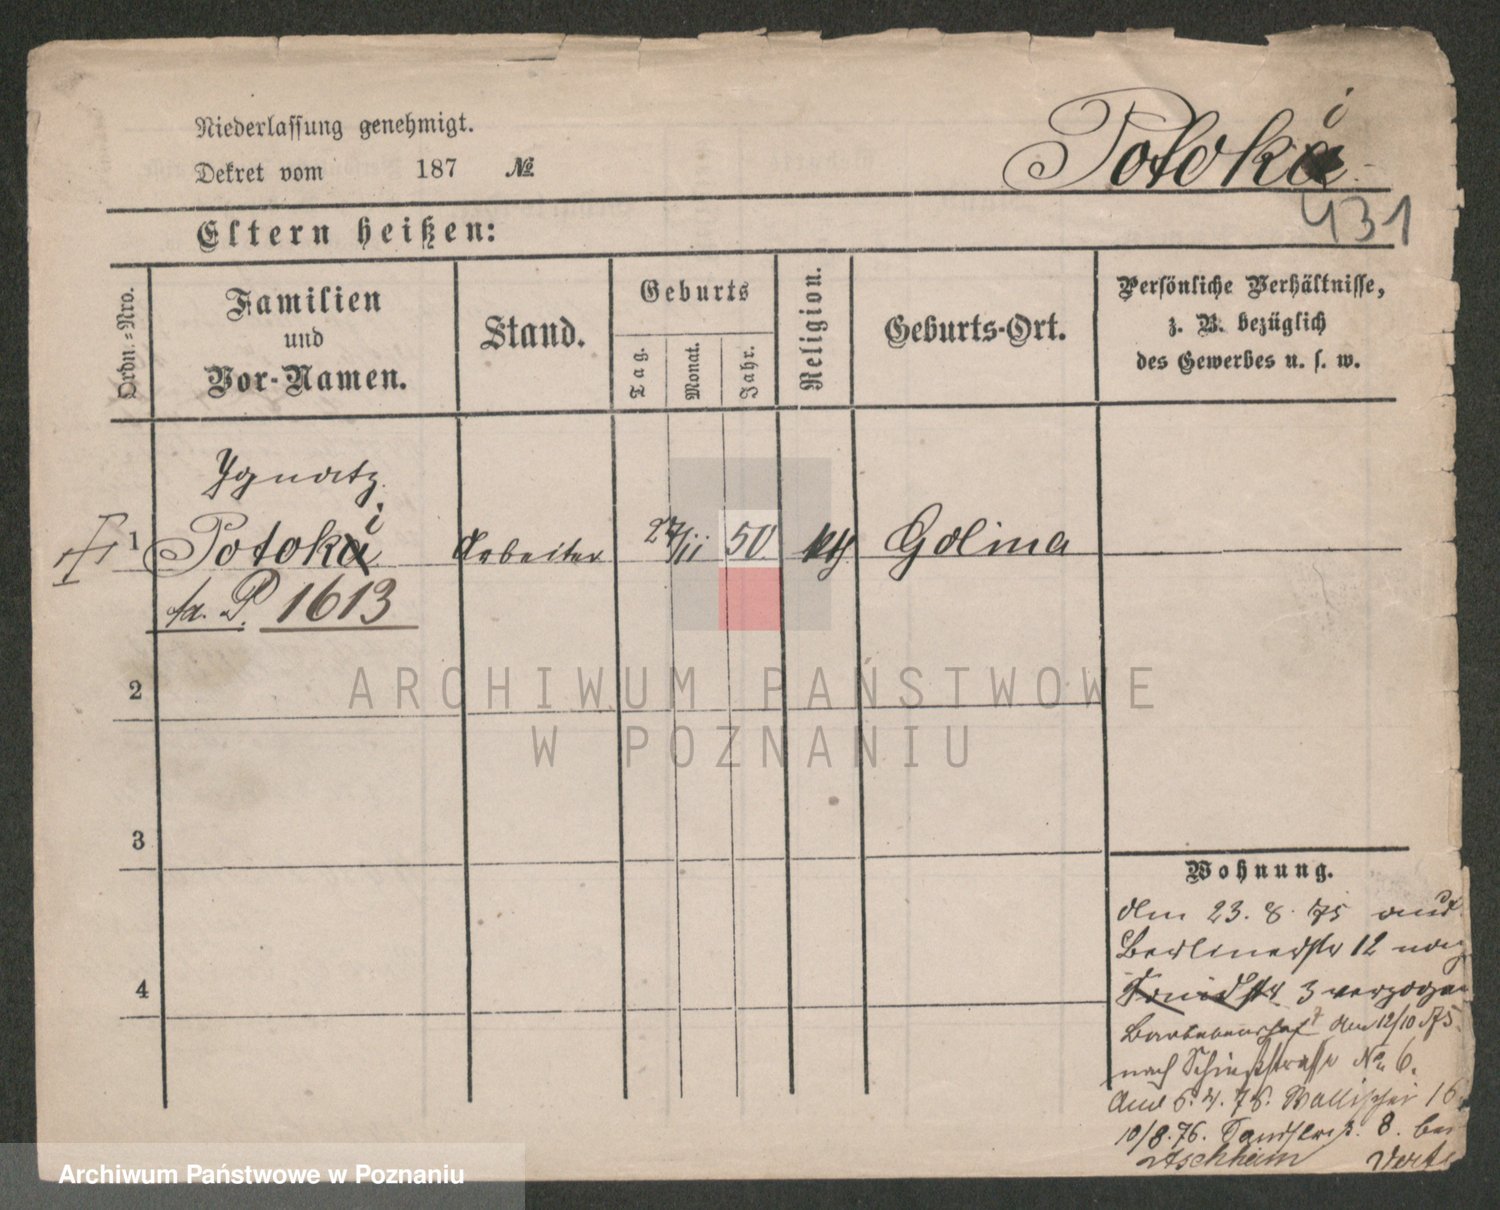 Niederlassung genehmigt.
Dekret vom 187 №
Potoki
431
Eltern heißen:
Ordn.-Nro.
Familien
und
Vor-Namen.
Stand.
Geburts
Tag.
Monat.
Jahr.
Religion.
Geburts-Ort.
Persönliche Verhältnisse,
z. B. bezüglich
des Gewerbes u. s. w.
Ygnatz
1 Potoki Arbeiter 27/11 50 kth Golina
P. 1613
2
ARCHIWUM PAŃSTWOWE
W POZNANIU
3
4
Wohnung.
den 23. 8. 75 aus
Berlinerstr 12 nach
3 verzogen
den 12/10 75
nach Schießstrasse No 6.
6. 4. 76. Wallischei 16
10/8.76. Sandstraß. 8. bei
Archiwum Państwowe w Poznaniu